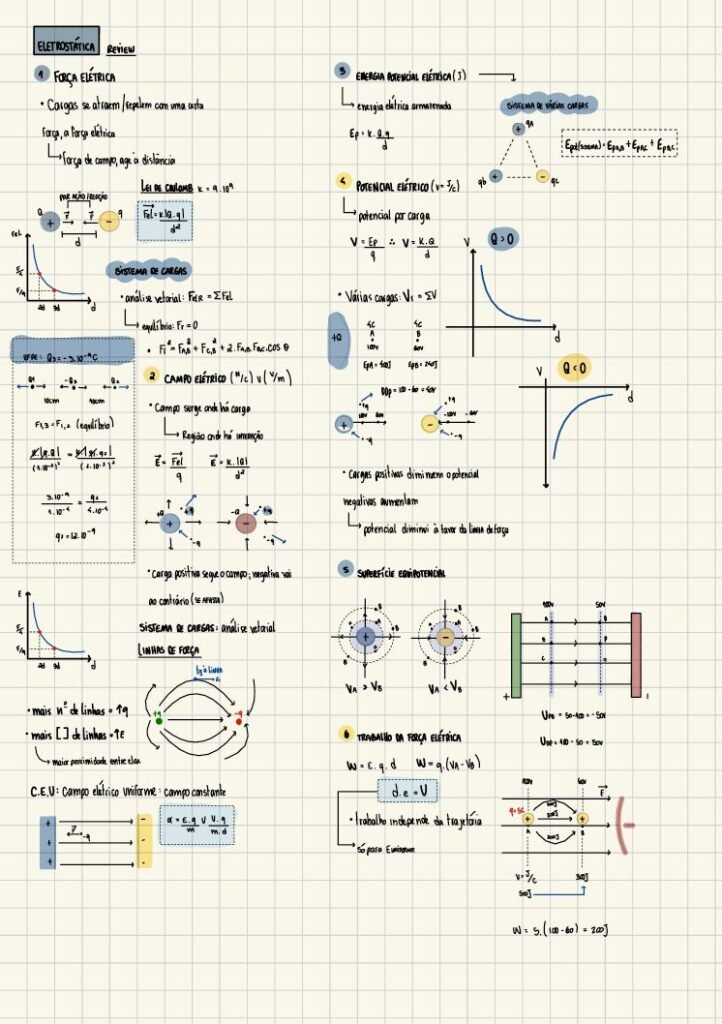 ELETROSTÁTICA REVIEW
1 FORÇA ELÉTRICA
• Cargas se atraem/repelem com uma certa
força, a força elétrica
força de campo, age à distância
LEI DE COULOMB K = 9.10⁹
PAR AÇÃO/REAÇÃO
Q + F F - q
d
Fel = K|Q.q| / d²
Fel
F/4
F/9
2d 3d d
SISTEMA DE CARGAS
• análise vetorial: FelR = ΣFel
equilíbrio: Fr = 0
• Fr² = FA,B² + FC,B² + 2.FA,B.FB,C.COS θ
10cm 10cm
F1,3 = F1,2 (equilíbrio)
2 CAMPO ELÉTRICO (N/C) V (V/m)
• Campo surge onde há carga
Região onde há interação
E = Fel / q E = K.|Q| / d²
+Q +q -Q +q
+ -
-q -q
• Carga positiva segue o campo; negativa vai
ao contrário (SE AFASTA)
SISTEMA DE CARGAS: análise vetorial
LINHAS DE FORÇA
E
E/4
E/9
2d 3d d
+q -q
• mais nº de linhas = ↑q
• mais [ ] de linhas = ↑E
maior proximidade entre elas
C.E.U: Campo elétrico Uniforme: campo constante
+ -
+ F -q -
+ -
α = E.q / m V V.q / m.d
3 ENERGIA POTENCIAL ELÉTRICA (J)
energia elétrica armazenada
Ep = K.Q.q / d
SISTEMA DE VÁRIAS CARGAS
qA
+
qb + - qc
Epot(sistema) = EpA,B + EpA,C + EpB,C
4 POTENCIAL ELÉTRICO (V = J/C)
potencial por carga
V = Ep / q ∴ V = K.Q / d
Q > 0
V
d
• Várias cargas: Vr = ΣV
+Q
5C 5C
A B
100V 60V
DDp = 100 - 60 = 40V
Q < 0
V
d
• Cargas positivas diminuem o potencial
negativas aumentam
potencial diminui à favor da linha de força
5 SUPERFÍCIE EQUIPOTENCIAL
VA > VB VA < VB
100V 50V
+
6 TRABALHO DA FORÇA ELÉTRICA
W = E.q.d W = q.(VA - VB)
d.e = U
• Trabalho independe da trajetória
Só para E uniforme
60V
F
q=5C
200J
200J
200J
A B
V = J/C 300J
500J
W = 5.(100-60) = 200J